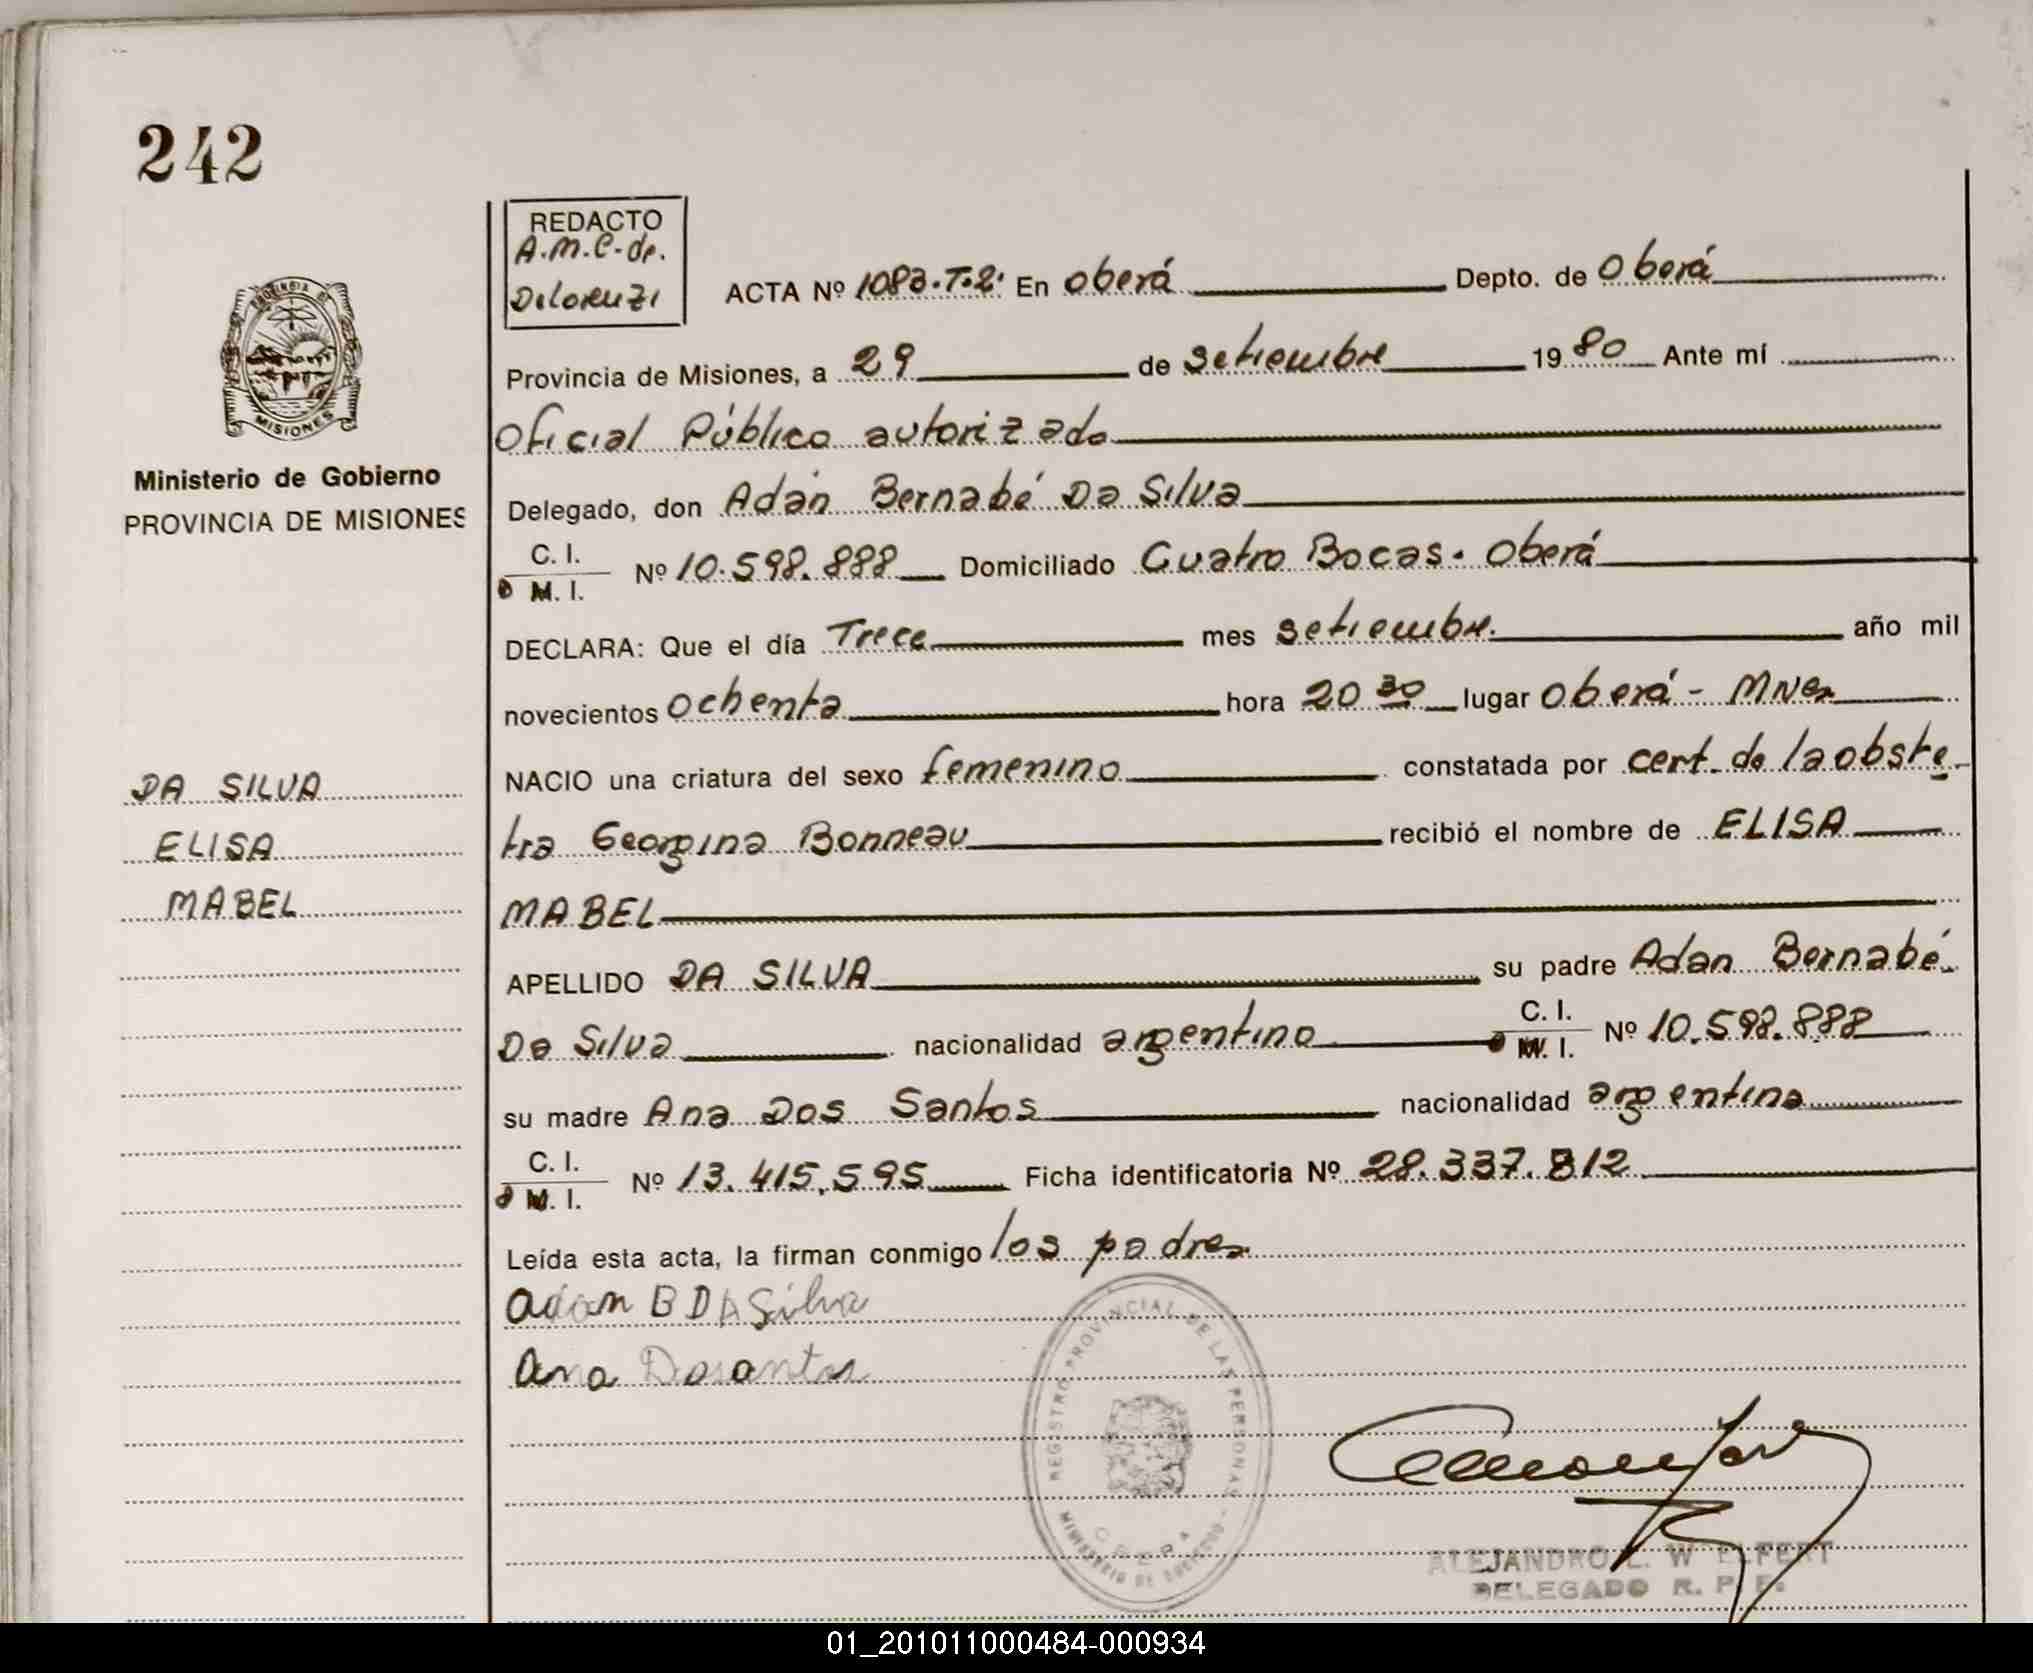 242
REDACTO
A.M.C. de.
Delorenzi
ACTA Nº 1083.T.2. En Oberá Depto. de Oberá
Provincia de Misiones, a 29 de setiembre 1980 Ante mí
Oficial Público autorizado
Delegado, don Adán Bernabé Da Silva
C. I.
o M. I. Nº 10.598.888 Domiciliado Cuatro Bocas. Oberá
DECLARA: Que el día Trece mes setiembre. año mil
novecientos ochenta hora 20 30 lugar Oberá - Mnes
NACIO una criatura del sexo femenino constatada por cert. de la obste
tra Georgina Bonneau recibió el nombre de ELISA
MABEL
APELLIDO DA SILVA su padre Adan Bernabé
Da Silva nacionalidad argentino C. I. o M. I. Nº 10.598.888
su madre Ana Dos Santos nacionalidad argentina
C. I.
o M. I. Nº 13.415.595 Ficha identificatoria Nº 28.337.812
Leída esta acta, la firman conmigo los padres
Adan B DA Silva
Ana Dosantos
PROVINCIA DE
MISIONES
Ministerio de Gobierno
PROVINCIA DE MISIONES
DA SILVA
ELISA
MABEL
REGISTRO PROVINCIAL DE LAS PERSONAS
MINISTERIO DE GOBIERNO
OBERA
ALEJANDRO L. W ELFERT
DELEGADO R. P. P.
01_201011000484-000934